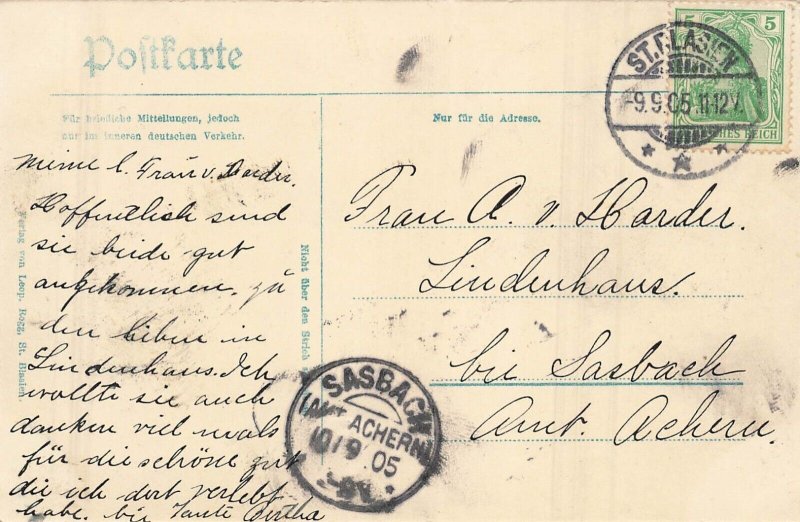 Postkarte
Für briefliche Mitteilungen, jedoch
nur im inneren deutschen Verkehr.
Nur für die Adresse.
5 5
DEUTSCHES REICH
ST. BLASIEN
-9.9.05.11-12V.
meine l. Frau v. Harder.
Hoffentlich sind
sie beide gut
angekommen. zu
den lieben in
Lindenhaus. Ich
wollte sie auch
danken viel mals
für die schöne zeit
die ich dort verlebt
habe. bei Tante Bertha
Verlag von Leop. Rogg, St. Blasien
Nicht über den Strich
Frau A. v. Harder.
Lindenhaus.
bei Sasbach
Amt Achern.
SASBACH
(AMT ACHERN)
10/9.05